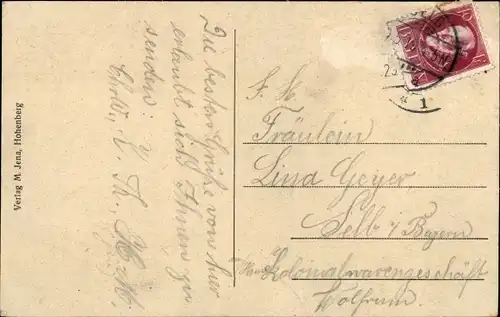 Die besten Grüße von hier
erlaubt sich Ihnen zu
senden:
Verlag M. Jena, Hohenberg
Fräulein
Lina Geyer,
Selb i/Bayern
Kolonialwarengeschäft
Wolfrum.
1